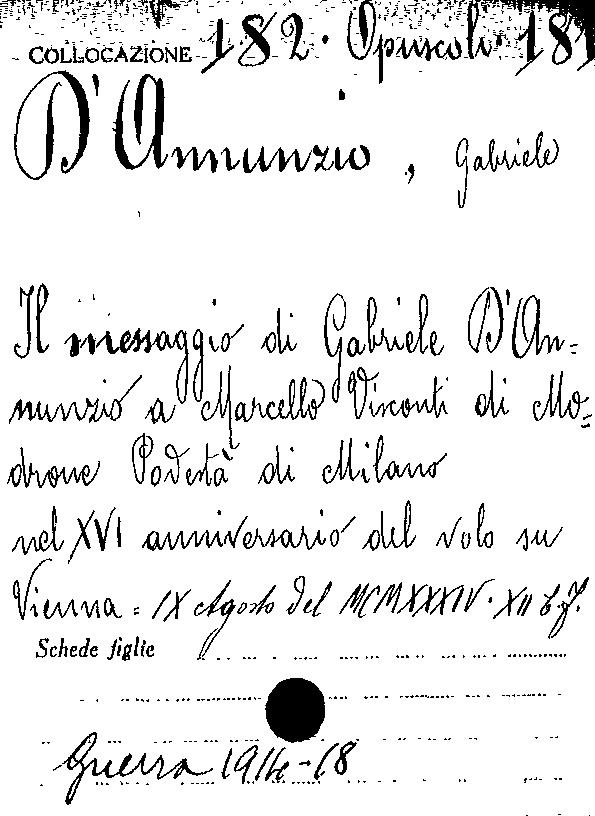 COLLOCAZIONE 182. Opuscoli. 181
D'Annunzio, Gabriele
Il messaggio di Gabriele D'An=
nunzio a Marcello Visconti di Mo=
drone Podestà di Milano
nel XVI anniversario del volo su
Vienna = IX Agosto del MCMXXXIV. XII E.F.
Schede figlie
Guerra 1914-18